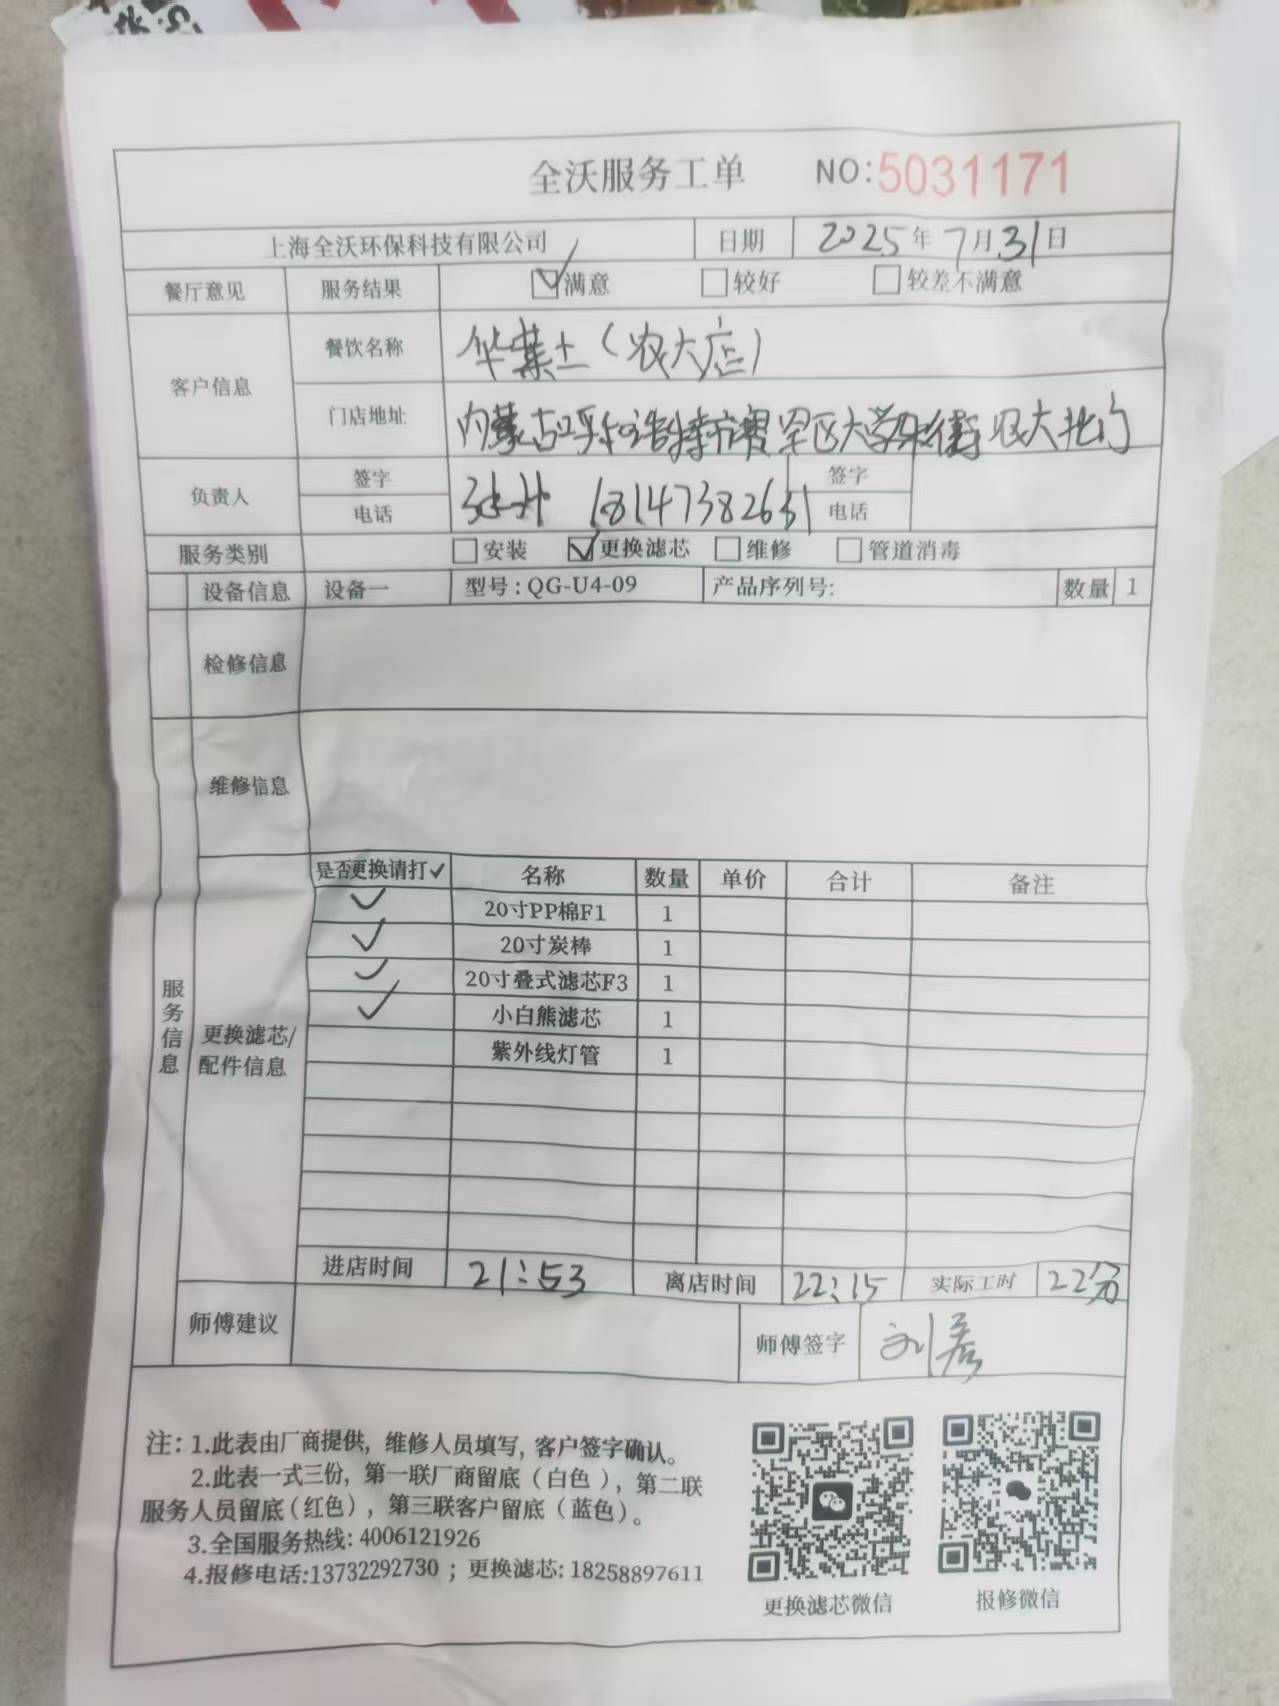 全沃服务工单 NO:5031171
上海全沃环保科技有限公司 日期 2025年7月31日
餐厅意见 服务结果 满意 较好 较差不满意
客户信息 餐饮名称 华莱士(农大店)
门店地址 内蒙古呼和浩特市赛罕区大学东街农大北门
负责人 签字 签字
电话 18147382631 电话
服务类别 安装 更换滤芯 维修 管道消毒
设备信息 设备一 型号:QG-U4-09 产品序列号: 数量 1
检修信息
维修信息
服务信息
更换滤芯/配件信息
是否更换请打✓ 名称 数量 单价 合计 备注
✓ 20寸PP棉F1 1
✓ 20寸炭棒 1
✓ 20寸叠式滤芯F3 1
✓ 小白熊滤芯 1
紫外线灯管 1
进店时间 21:53 离店时间 22:15 实际工时 22分
师傅建议 师傅签字 刘
注: 1.此表由厂商提供, 维修人员填写, 客户签字确认。
2.此表一式三份, 第一联厂商留底(白色), 第二联
服务人员留底(红色), 第三联客户留底(蓝色)。
3.全国服务热线: 4006121926
4.报修电话:13732292730 ; 更换滤芯: 18258897611
更换滤芯微信 报修微信